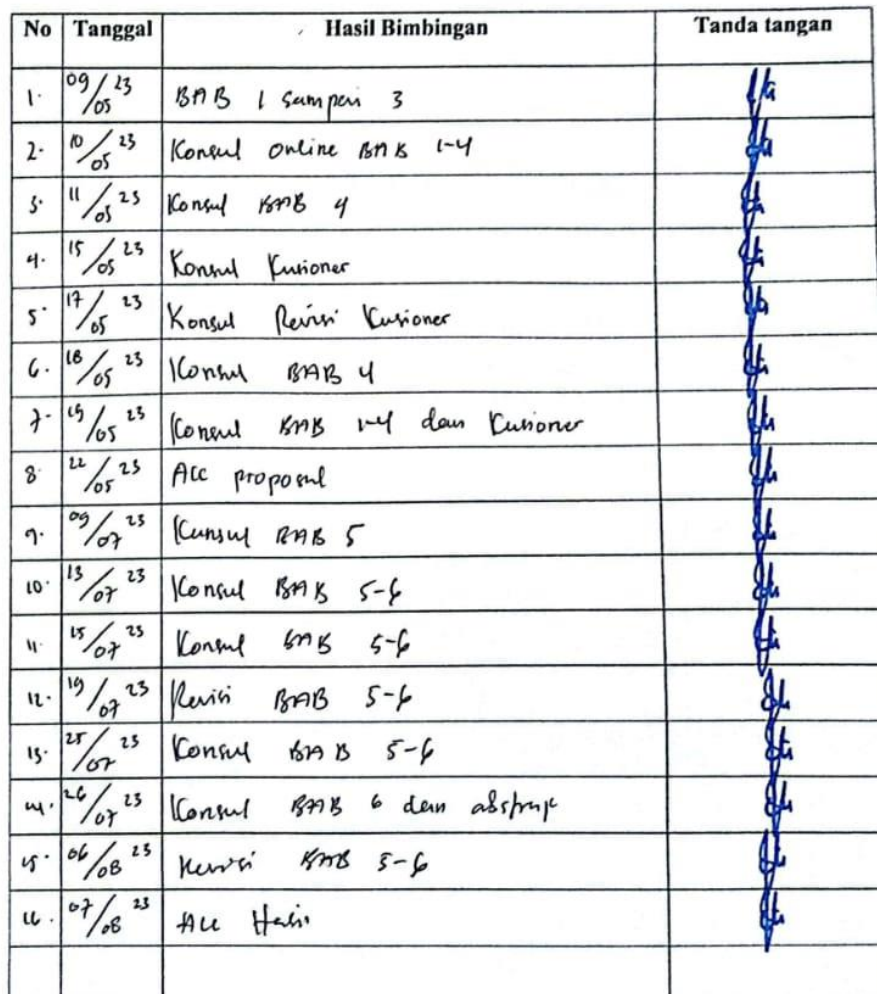 No Tanggal Hasil Bimbingan Tanda tangan
1. 09/05 23 BAB 1 sampai 3
2. 10/05 23 Konsul online BAB 1-4
3. 11/05 23 Konsul BAB 4
4. 15/05 23 Konsul Kusioner
5. 17/05 23 Konsul Revisi Kusioner
6. 18/05 23 Konsul BAB 4
7. 19/05 23 Konsul BAB 1-4 dan Kusioner
8. 22/05 23 Acc proposal
9. 09/07 23 Kunsul BAB 5
10. 13/07 23 Konsul BAB 5-6
11. 15/07 23 Konsul BAB 5-6
12. 19/07 23 Revisi BAB 5-6
13. 25/07 23 Konsul BAB 5-6
14. 26/07 23 Konsul BAB 6 dan abstrak
15. 06/08 23 Revisi BAB 5-6
16. 07/08 23 Acc Hasil